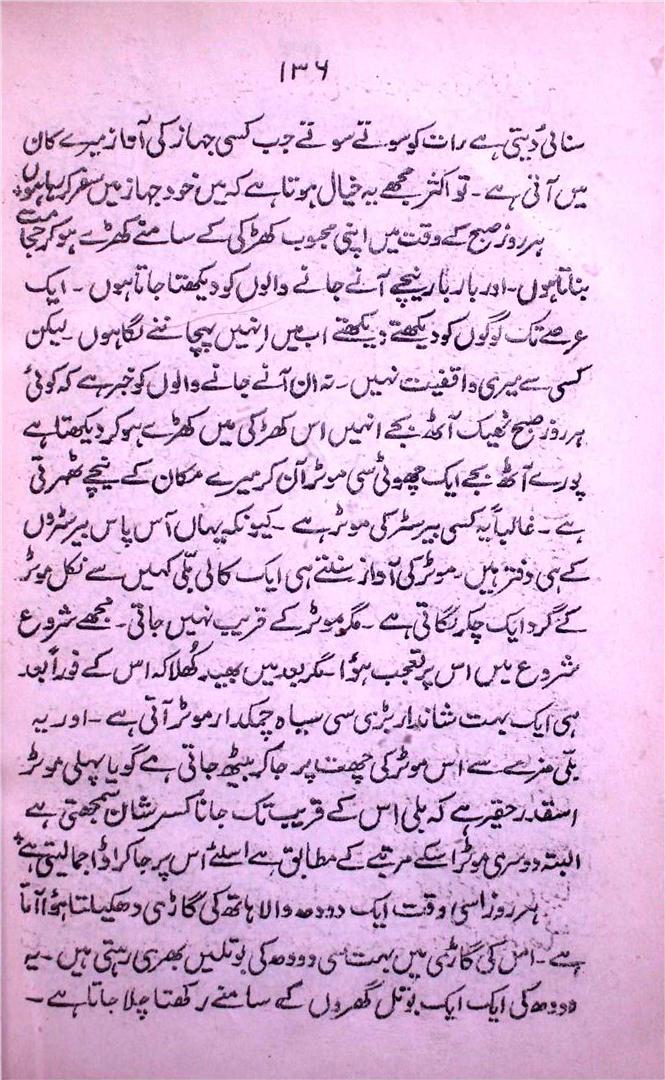 ۱۳۶
سنائی دیتی ہے رات کو سوتے سوتے جب کسی جہاز کی آواز میرے کان
میں آتی ہے ۔ تو اکثر مجھے یہ خیال ہوتا ہے کہ میں خود جہاز میں سفر کر رہا ہوں ۔
ہر روز صبح کے وقت میں اپنی محبوب کھڑکی کے سامنے کھڑے ہو کر حجامت
بناتا ہوں ۔ اور بار بار نیچے آنے جانے والوں کو دیکھتا جاتا ہوں ۔ ایک
عرصے تک لوگوں کو دیکھتے دیکھتے اب میں انہیں پہچاننے لگا ہوں ۔ لیکن
کسی سے میری واقفیت نہیں ۔ نہ ان آنے جانے والوں کو خبر ہے کہ کوئی
ہر روز صبح ٹھیک آٹھ بجے انہیں اس کھڑکی میں کھڑے ہو کر دیکھتا ہے
پورے آٹھ بجے ایک چھوٹی سی موٹر آن کر میرے مکان کے نیچے ٹھہرتی
ہے ۔ غالباً یہ کسی بیرسٹر کی موٹر ہے ۔ کیونکہ یہاں آس پاس بیرسٹروں
کے ہی دفتر ہیں ۔ موٹر کی آواز سنتے ہی ایک کالی بلّی کہیں سے نکل موٹر
کے گرد ایک چکر لگاتی ہے ۔ مگر موٹر کے قریب نہیں جاتی ۔ مجھے شروع
شروع میں اس پر تعجب ہؤا ۔ مگر بعد میں بھید کُھلا کہ اس کے فوراً بعد
ہی ایک بہت شاندار بڑی سی سیاہ چمکدار موٹر آتی ہے ۔ اور یہ
بلّی مزے سے اس موٹر کی چھت پر جا کر بیٹھ جاتی ہے گویا پہلی موٹر
اسقدر حقیر ہے کہ بلی اس کے قریب تک جانا کسرِ شان سمجھتی ہے
البتہ دوسری موٹر اسکے مرتبے کے مطابق ہے اسلئے اس پر جا کر اڈا جما لیتی ہے ۔
ہر روز اسی وقت ایک دودھ والا ہاتھ کی گاڑی دھکیلتا ہؤا آتا
ہے ۔ اس کی گاڑی میں بہت سی دودھ کی بوتلیں بھری رہتی ہیں ۔ یہ
دودھ کی ایک ایک بوتل گھروں کے سامنے رکھتا چلا جاتا ہے ۔